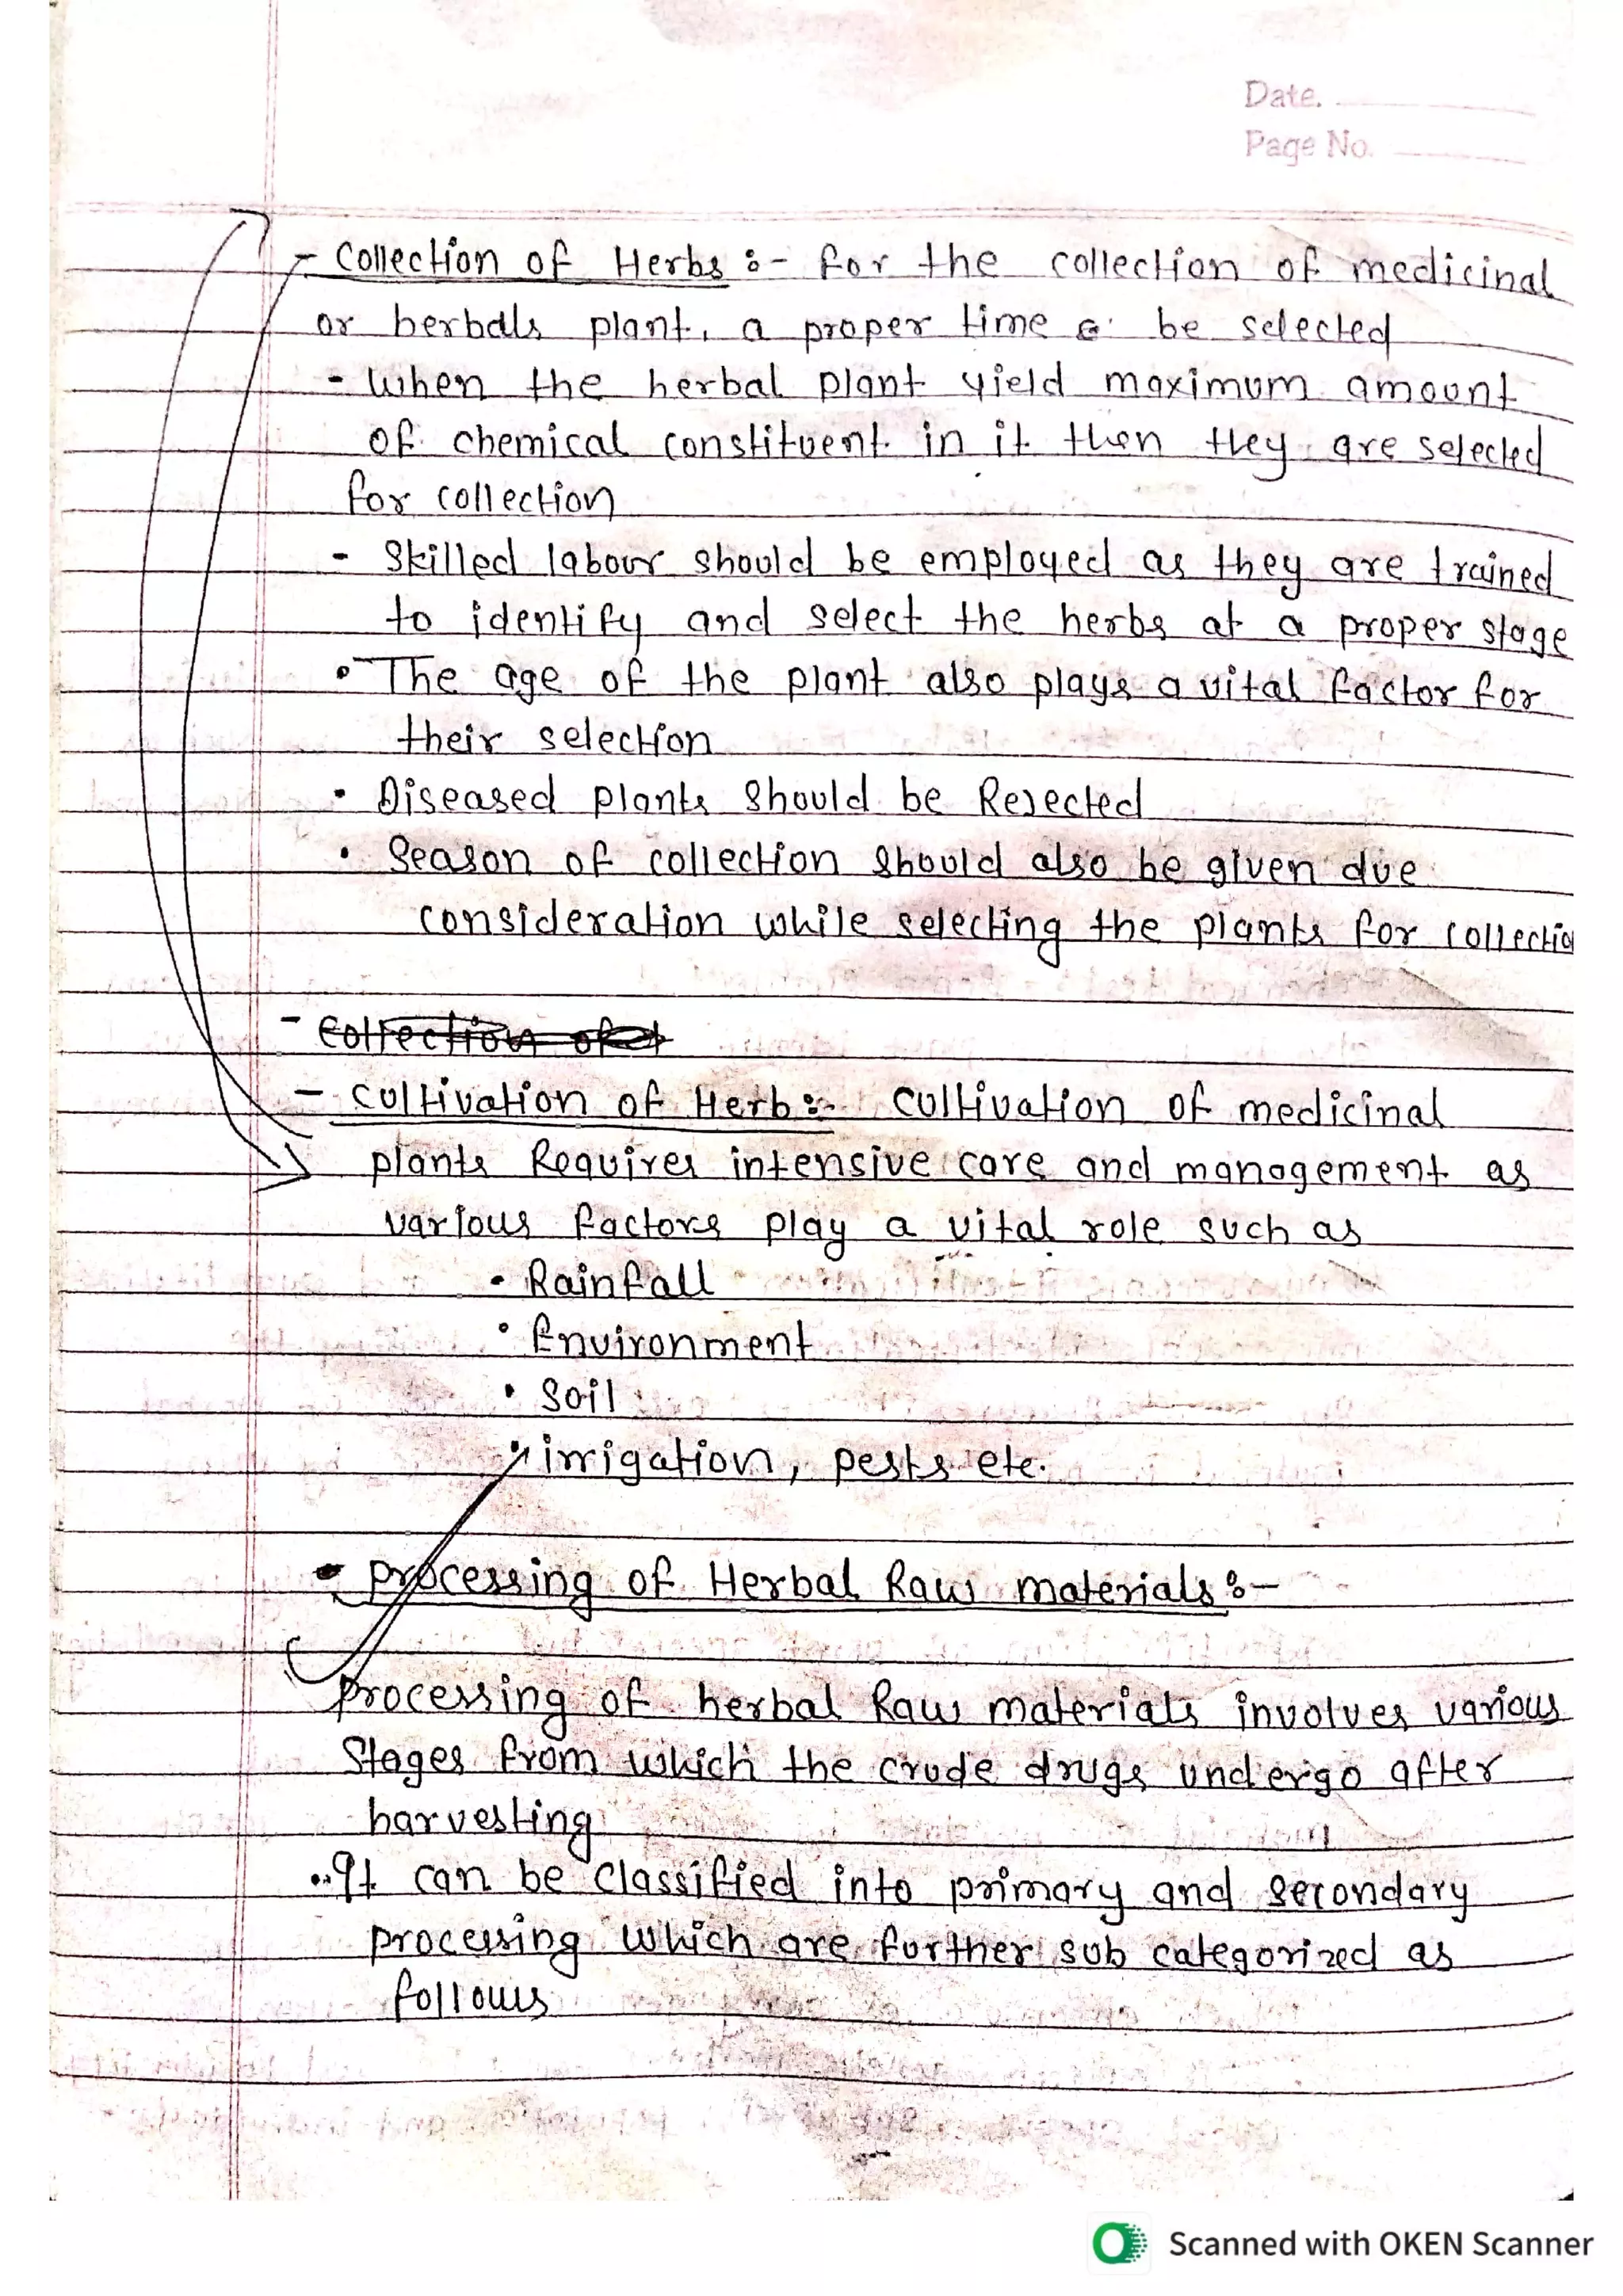 Date.
Page No.
- Collection of Herbs :- for the collection of medicinal
or herbals plant, a proper time be selected
- when the herbal plant yield maximum amount
of chemical constituent in it then they are selected
for collection
- Skilled labour should be employed as they are trained
to identify and select the herbs at a proper stage
• The age of the plant also plays a vital factor for
their selection
• Diseased plants should be Rejected
• Season of collection should also be given due
consideration while selecting the plants for collectio
- Collection of
- Cultivation of Herb :- Cultivation of medicinal
plants Requires intensive care and management as
various factors play a vital role such as
• Rainfall
• Environment
• Soil
• irrigation, pests etc.
• processing of Herbal Raw materials :-
processing of herbal Raw materials involves various
Stages from which the crude drugs undergo after
harvesting
• It can be classified into primary and secondary
processing which are further sub categorized as
follows
Scanned with OKEN Scanner